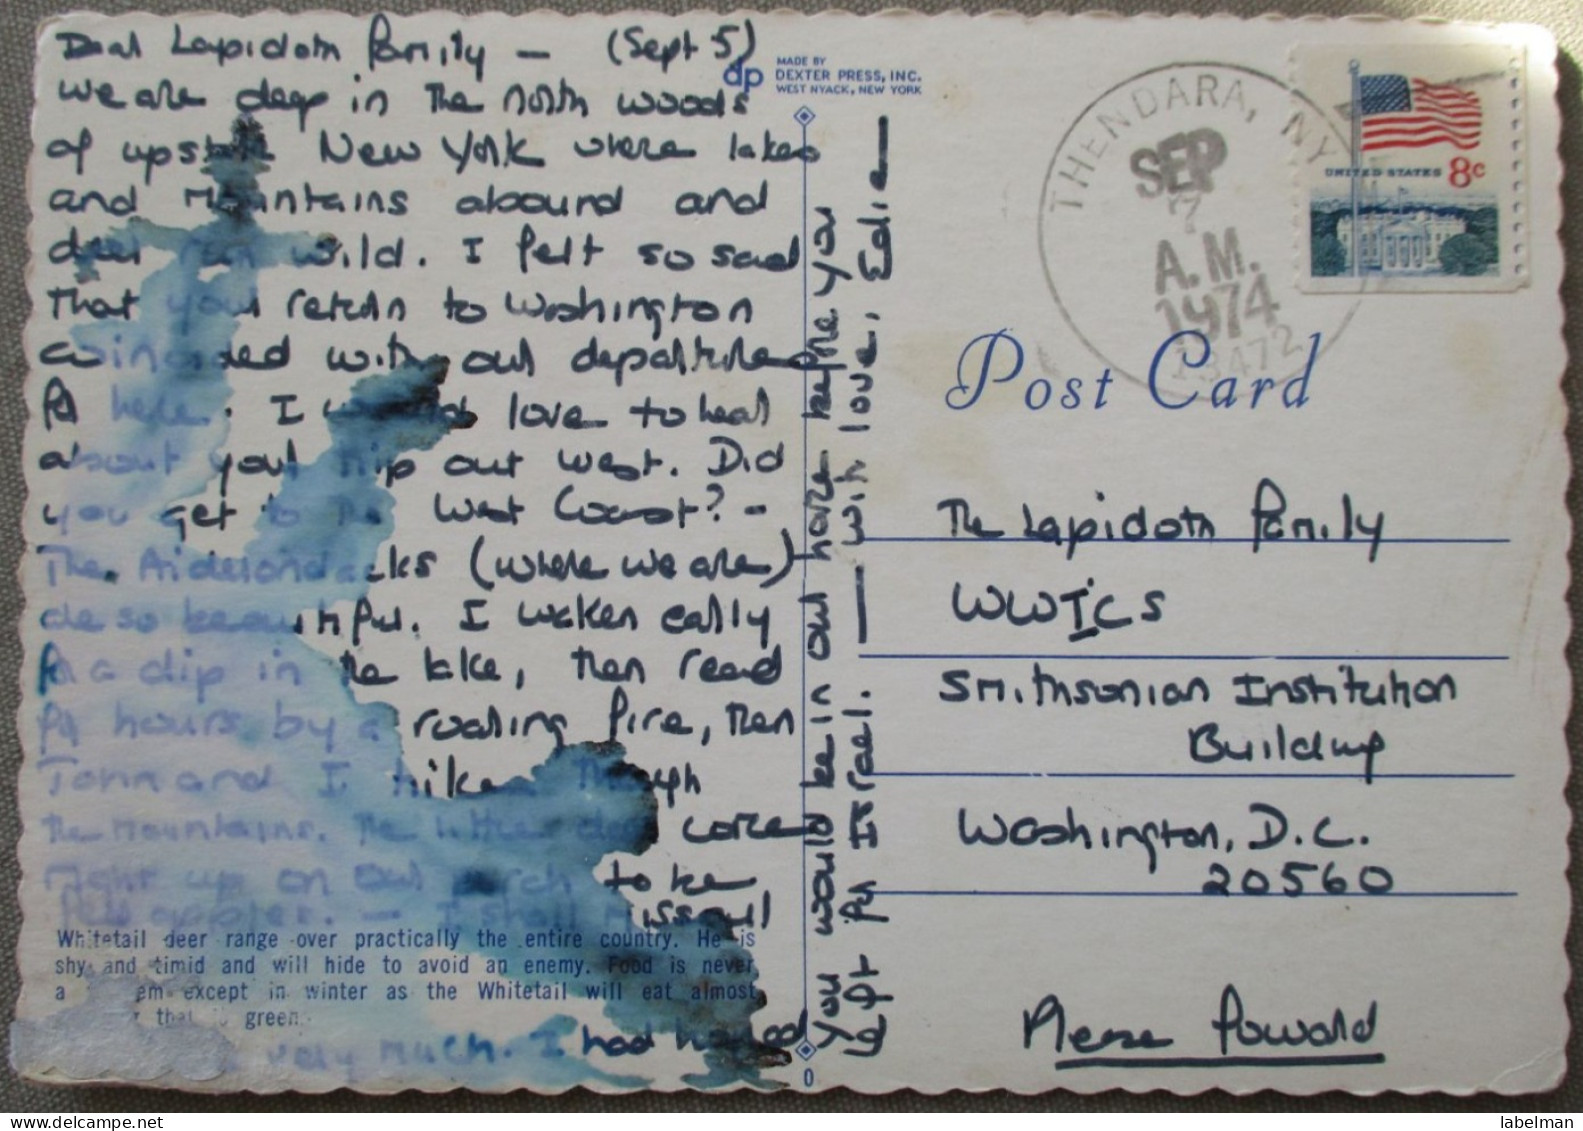 Dear Lapidoth Family — (Sept 5)
We are deep in the north woods
of upstate New York where lakes
and mountains abound and
deer run wild. I felt so sad
that your return to Washington
coincided with our departure
for here. I would love to hear
about your trip out west. Did
you get to the West Coast? -
The Aiderondacks (where we are)
are so beautiful. I waken early
for a dip in the lake, then read
for hours by a roaring fire, then
John and I hike through
the mountains. The little deer come
right up on our porch to be
fed apples. — I shall miss you all
very much. I had hoped
you would be in our house before you
left for Israel. — with love, Edie —
Whitetail deer range over practically the entire country. He is
shy and timid and will hide to avoid an enemy. Food is never
a em except in winter as the Whitetail will eat almost
that is green.
dp
MADE BY
DEXTER PRESS, INC.
WEST NYACK, NEW YORK
0
THENDARA, NY
SEP
7
A.M.
1974
13472
UNITED STATES 8c
Post Card
The Lapidoth Family
WWICS
Smithsonian Institution
Building
Washington, D.C.
20560
Please Forward
labelman